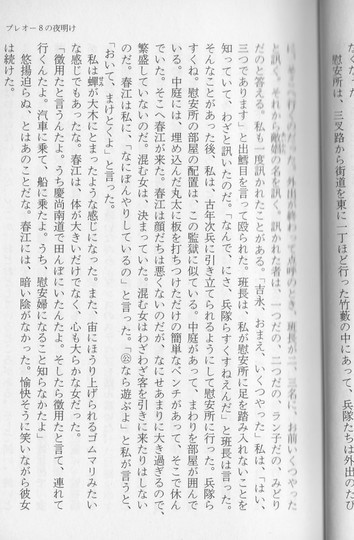 プレオー8の夜明け
慰安所は、三叉路から街道を東に一丁ほど行った竹藪の中にあって、兵隊たちは外出のたび
外出が終わって
点呼のとき、班長が二、三名に、お前いくつやった
と訊く。それから敵娼の名を訊く。訊かれた者は、一つだの、二つだの、ラン子だの、みどり
だのと答える。私も一度訊かれたことがある。「吉永、おまえ、いくつやった」私は、「はい、
三つであります」と出鱈目を言って殴られた。班長は、私が慰安所に足を踏み入れないことを
知っていて、わざと訊いたのだ。「なんで、にさ、兵隊らすくすねえんだ」と班長は言った。
そんなことがあった後、私は、古年次兵に引き立てられるようにして慰安所に行った。兵隊ら
すくね。慰安所の部屋の配置は、この監獄に似ている。中庭があって、まわりを部屋が囲んで
いる。中庭には、埋め込んだ鬼太に板を打ちつけただけの簡単なベンチがあって、そこで休ん
でいた。そこへ春江が来た。春江は顔だちは悪くないのだが、なにせあまりに大き過ぎるので、
繁盛していないのだ。混む女は、決まっていた。混む女はわざわざ客を引きに来たりはしない
のだ。春江は私に、「なにぼんやりしているの」と言った。「㊂なら遊ぶよ」と私が言うと、
「おいて、まけとくよ」と言った。
私は蟬が大木にとまったような感じになった。また、宙にほうり上げられるゴムマリみたい
な感じでもあったな。春江は、体が大きいだけでなく、心も大らかな女だった。
「徴用だと言うんたよ。うち慶尚南道で田んぼにいたんたよ。そしたら徴用たと言て、連れて
行くんたよ。汽車に乗て、船に乗たよ。うち、慰安婦になること知らなかたよ」
悠揚迫らぬ、とはあのことだな。春江には、暗い陰がなかった。愉快そうに笑いながら彼女
は続けた。